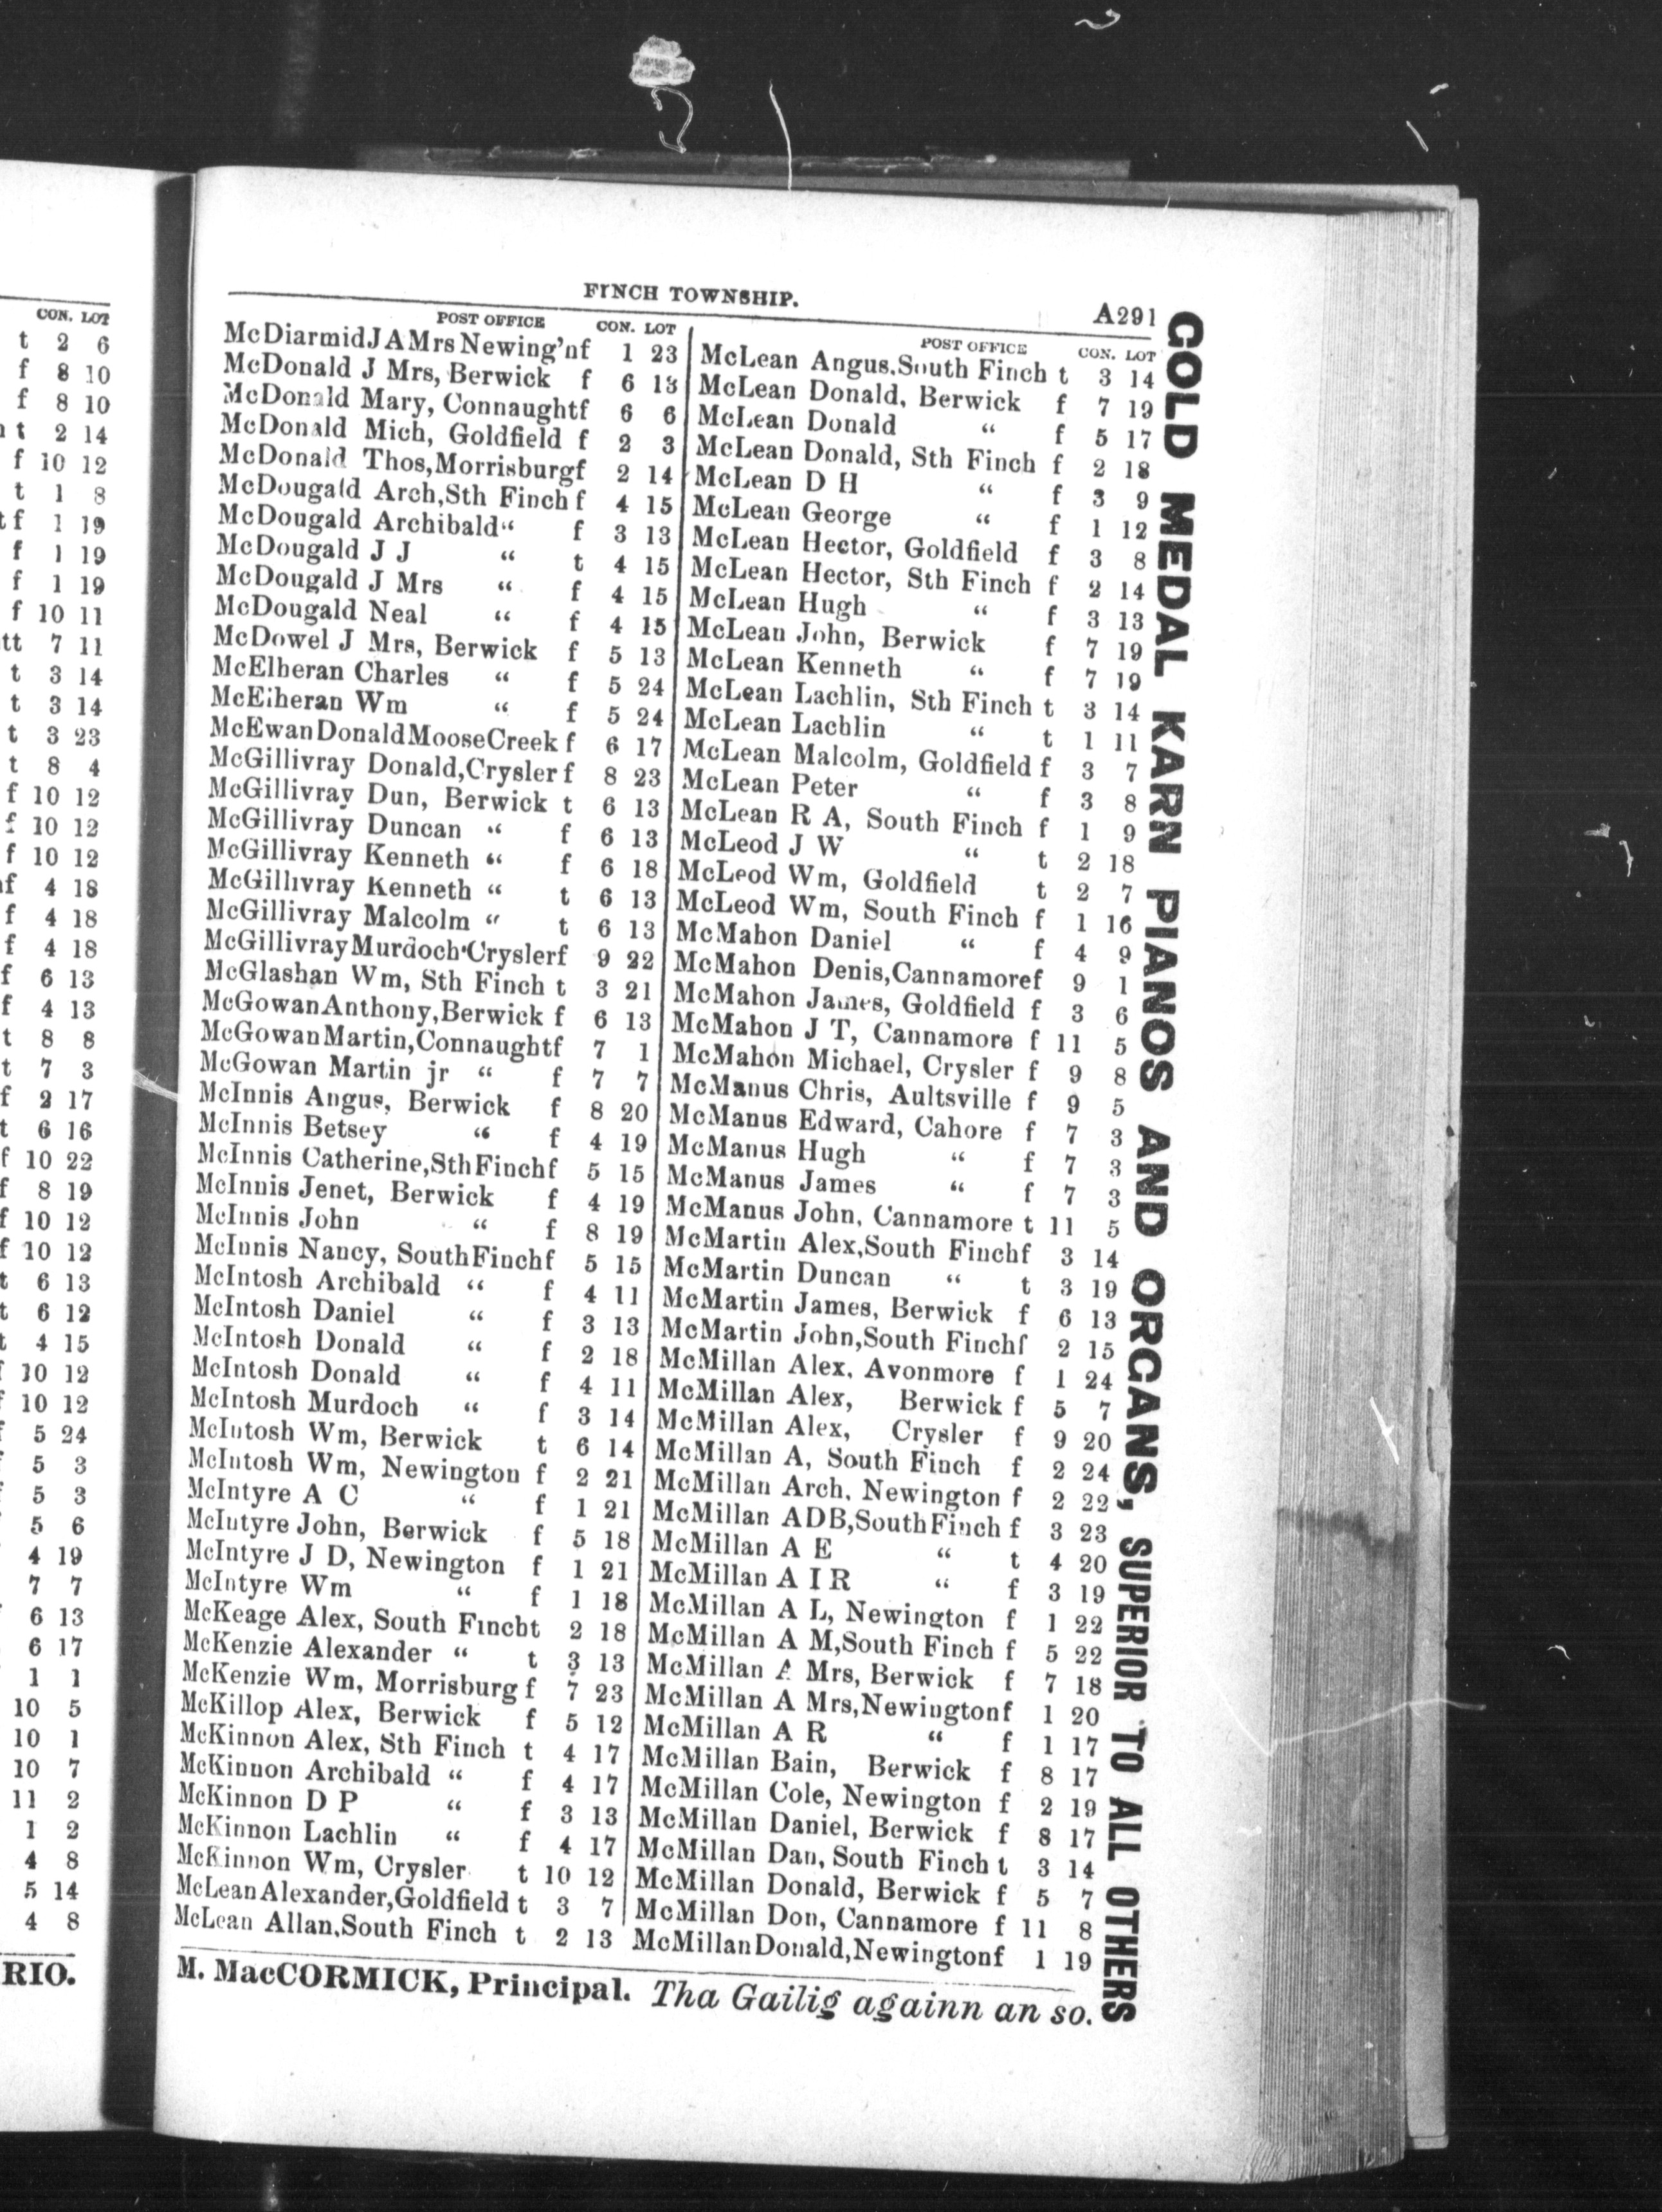 CON. LOT
t 2 6
f 8 10
f 8 10
t 2 14
f 10 12
t 1 8
f 1 19
f 1 19
f 1 19
f 10 11
tt 7 11
t 3 14
t 3 14
t 3 23
t 8 4
f 10 12
f 10 12
f 10 12
f 4 18
f 4 18
f 4 18
f 6 13
f 4 13
t 8 8
t 7 3
f 2 17
t 6 16
f 10 22
f 8 19
f 10 12
f 10 12
t 6 13
t 6 12
t 4 15
10 12
10 12
5 24
5 3
5 3
5 6
4 19
7 7
6 13
6 17
1 1
10 5
10 1
10 7
11 2
1 2
4 8
5 14
4 8
RIO.
FINCH TOWNSHIP.
A291
POST OFFICE CON. LOT
McDiarmidJAMrsNewing'nf 1 23
McDonald J Mrs, Berwick f 6 13
McDonald Mary, Connaughtf 6 6
McDonald Mich, Goldfield f 2 3
McDonald Thos,Morrisburgf 2 14
McDougald Arch,Sth Finch f 4 15
McDougald Archibald“ f 3 13
McDougald J J “ t 4 15
McDougald J Mrs “ f 4 15
McDougald Neal “ f 4 15
McDowel J Mrs, Berwick f 5 13
McElheran Charles “ f 5 24
McElheran Wm “ f 5 24
McEwanDonaldMooseCreek f 6 17
McGillivray Donald,Crysler f 8 23
McGillivray Dun, Berwick t 6 13
McGillivray Duncan “ f 6 13
McGillivray Kenneth “ f 6 18
McGillivray Kenneth “ t 6 13
McGillivray Malcolm “ t 6 13
McGillivrayMurdoch'Cryslerf 9 22
McGlashan Wm, Sth Finch t 3 21
McGowanAnthony,Berwick f 6 13
McGowanMartin,Connaughtf 7 1
McGowan Martin jr “ f 7 7
McInnis Angus, Berwick f 8 20
McInnis Betsey “ f 4 19
McInnis Catherine,SthFinchf 5 15
McInnis Jenet, Berwick f 4 19
McInnis John “ f 8 19
McInnis Nancy, SouthFinchf 5 15
McIntosh Archibald “ f 4 11
McIntosh Daniel “ f 3 13
McIntosh Donald “ f 2 18
McIntosh Donald “ f 4 11
McIntosh Murdoch “ f 3 14
McIntosh Wm, Berwick t 6 14
McIntosh Wm, Newington f 2 21
McIntyre A C “ f 1 21
McIntyre John, Berwick f 5 18
McIntyre J D, Newington f 1 21
McIntyre Wm “ f 1 18
McKeage Alex, South Fincht 2 18
McKenzie Alexander “ t 3 13
McKenzie Wm, Morrisburg f 7 23
McKillop Alex, Berwick f 5 12
McKinnon Alex, Sth Finch t 4 17
McKinnon Archibald “ f 4 17
McKinnon D P “ f 3 13
McKinnon Lachlin “ f 4 17
McKinnon Wm, Crysler t 10 12
McLeanAlexander,Goldfield t 3 7
McLean Allan,South Finch t 2 13
POST OFFICE CON. LOT
McLean Angus,South Finch t 3 14
McLean Donald, Berwick f 7 19
McLean Donald “ f 5 17
McLean Donald, Sth Finch f 2 18
McLean D H “ f 3 9
McLean George “ f 1 12
McLean Hector, Goldfield f 3 8
McLean Hector, Sth Finch f 2 14
McLean Hugh “ f 3 13
McLean John, Berwick f 7 19
McLean Kenneth “ f 7 19
McLean Lachlin, Sth Finch t 3 14
McLean Lachlin “ t 1 11
McLean Malcolm, Goldfield f 3 7
McLean Peter “ f 3 8
McLean R A, South Finch f 1 9
McLeod J W “ t 2 18
McLeod Wm, Goldfield t 2 7
McLeod Wm, South Finch f 1 16
McMahon Daniel “ f 4 9
McMahon Denis,Cannamoref 9 1
McMahon James, Goldfield f 3 6
McMahon J T, Cannamore f 11 5
McMahon Michael, Crysler f 9 8
McManus Chris, Aultsville f 9 5
McManus Edward, Cahore f 7 3
McManus Hugh “ f 7 3
McManus James “ f 7 3
McManus John, Cannamore t 11 5
McMartin Alex,South Finchf 3 14
McMartin Duncan “ t 3 19
McMartin James, Berwick f 6 13
McMartin John,South Finchf 2 15
McMillan Alex, Avonmore f 1 24
McMillan Alex, Berwick f 5 7
McMillan Alex, Crysler f 9 20
McMillan A, South Finch f 2 24
McMillan Arch, Newington f 2 22
McMillan ADB,SouthFinch f 3 23
McMillan A E “ t 4 20
McMillan A I R “ f 3 19
McMillan A L, Newington f 1 22
McMillan A M,South Finch f 5 22
McMillan A Mrs, Berwick f 7 18
McMillan A Mrs,Newingtonf 1 20
McMillan A R “ f 1 17
McMillan Bain, Berwick f 8 17
McMillan Cole, Newington f 2 19
McMillan Daniel, Berwick f 8 17
McMillan Dan, South Finch t 3 14
McMillan Donald, Berwick f 5 7
McMillan Don, Cannamore f 11 8
McMillanDonald,Newingtonf 1 19
M. MacCORMICK, Principal. Tha Gailig againn an so.
GOLD MEDAL KARN PIANOS AND ORGANS, SUPERIOR TO ALL OTHERS